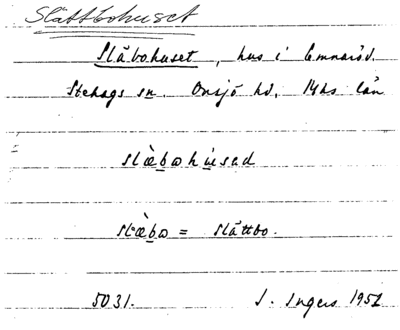 Slättbohuset
Slåbohuset, hus i Emnaröd.
Stehags sn. Onsjö hd, Mhs län
slæ̀bωhu̇sad
slæ̀bω = Slättbo.
5031. I. Ingers 1952